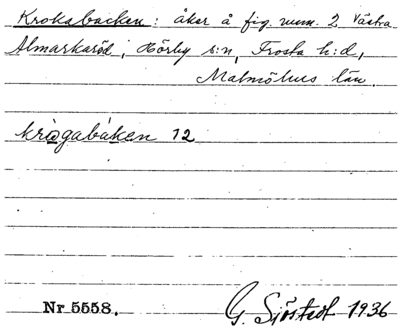 Krokabacken: åker å fig. num. 2 Västra
Almarkaröd, Hörby s:n, Frosta h:d,
Malmöhus län.
kriogabáken 12
Nr 5558.
G. Sjöstedt 1936